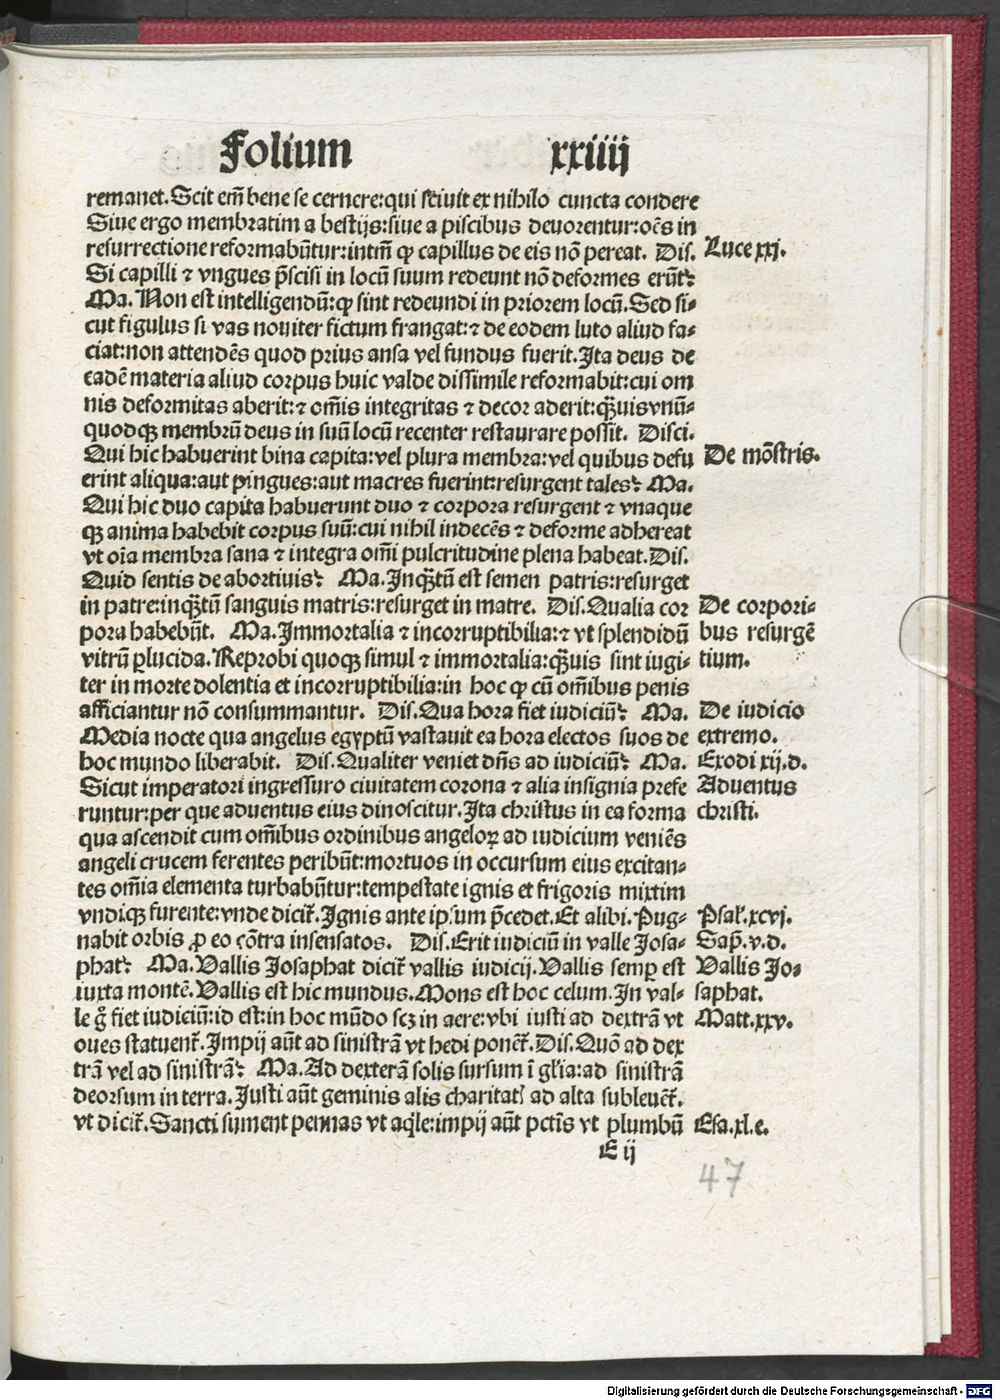 Folium xxiiij
remanet. Scit em̃ bene se cernere: qui sciuit ex nihilo cuncta condere
Siue ergo membratim a bestijs: siue a piscibus deuorentur: oẽs in
resurrectione reformabũtur: intm̃ ꝙ capillus de eis nõ pereat. Dis. Luce xxj.
Si capilli ⁊ vngues p̃scisi in locũ suum redeunt nõ deformes erũt?
Ma. Non est intelligendũ: ꝙ sint redeundi in priorem locũ. Sed si⸗
cut figulus si vas nouiter fictum frangat: ⁊ de eodem luto aliud fa⸗
ciat: non attendẽs quod prius ansa vel fundus fuerit. Ita deus de
eadẽ materia aliud corpus huic valde dissimile reformabit: cui om
nis deformitas aberit: ⁊ om̃is integritas ⁊ decor aderit: q̃uis vnũ⸗
quodqꝫ membrũ deus in suũ locũ recenter restaurare possit. Disci.
Qui hic habuerint bina capita: vel plura membra: vel quibus defu De mõstris.
erint aliqua: aut pingues: aut macres fuerint: resurgent tales? Ma.
Qui hic duo capita habuerunt duo ⁊ corpora resurgent ⁊ vnaque
qꝫ anima habebit corpus suũ: cui nihil indecẽs ⁊ deforme adhereat
vt oĩa membra sana ⁊ integra om̃i pulcritudine plena habeat. Dis.
Quid sentis de abortiuis? Ma. Inq̃tũ est semen patris: resurget
in patre: inq̃tũ sanguis matris: resurget in matre. Dis. Qualia cor De corpori⸗
pora habebũt. Ma. Immortalia ⁊ incorruptibilia: ⁊ vt splendidũ bus resurgẽ
vitrũ ꝑlucida. Reprobi quoqꝫ simul ⁊ immortalia: q̃uis sint iugi⸗ tium.
ter in morte dolentia et incorruptibilia: in hoc ꝙ cũ om̃ibus penis
afficiantur nõ consummantur. Dis. Qua hora fiet iudiciũ? Ma. De iudicio
Media nocte qua angelus egyptũ vastauit ea hora electos suos de extremo.
hoc mundo liberabit. Dis. Qualiter veniet dñs ad iudiciũ? Ma. Exodi xij. d.
Sicut imperatori ingressuro ciuitatem corona ⁊ alia insignia prefe Aduentus
runtur: per que aduentus eius dinoscitur. Ita christus in ea forma christi.
qua ascendit cum om̃ibus ordinibus angeloꝝ ad iudicium veniẽs
angeli crucem ferentes peribũt: mortuos in occursum eius excitan⸗
tes om̃ia elementa turbabũtur: tempestate ignis et frigoris mixtim
vndiqꝫ furente: vnde dicit̃. Ignis ante ipsum p̃cedet. Et alibi. Pug⸗ Psal. xcvj.
nabit orbis ꝓ eo cõtra insensatos. Dis. Erit iudiciũ in valle Josa⸗ Sap̃. v. d.
phat? Ma. Vallis Josaphat dicit̃ vallis iudicij. Vallis semꝑ est Vallis Jo⸗
iuxta montẽ. Vallis est hic mundus. Mons est hoc celum. In val⸗ saphat.
le g̃ fiet iudiciũ: id est: in hoc mũdo scꝫ in aere: vbi iusti ad dextrã vt Matt. xxv.
oues statuent̃. Impij aũt ad sinistrã vt hedi ponẽt̃. Dis. Quõ ad dex
trã vel ad sinistrã? Ma. Ad dexterã solis sursum ĩ gl̃ia: ad sinistrã
deorsum in terra. Justi aũt geminis alis charitatꝭ ad alta subleuẽt̃.
vt dicit̃. Sancti sument pennas vt aq̃le: impij aũt pctĩs vt plumbũ Esa. xl. e.
E ij
47
Digitalisierung gefördert durch die Deutsche Forschungsgemeinschaft - DFG